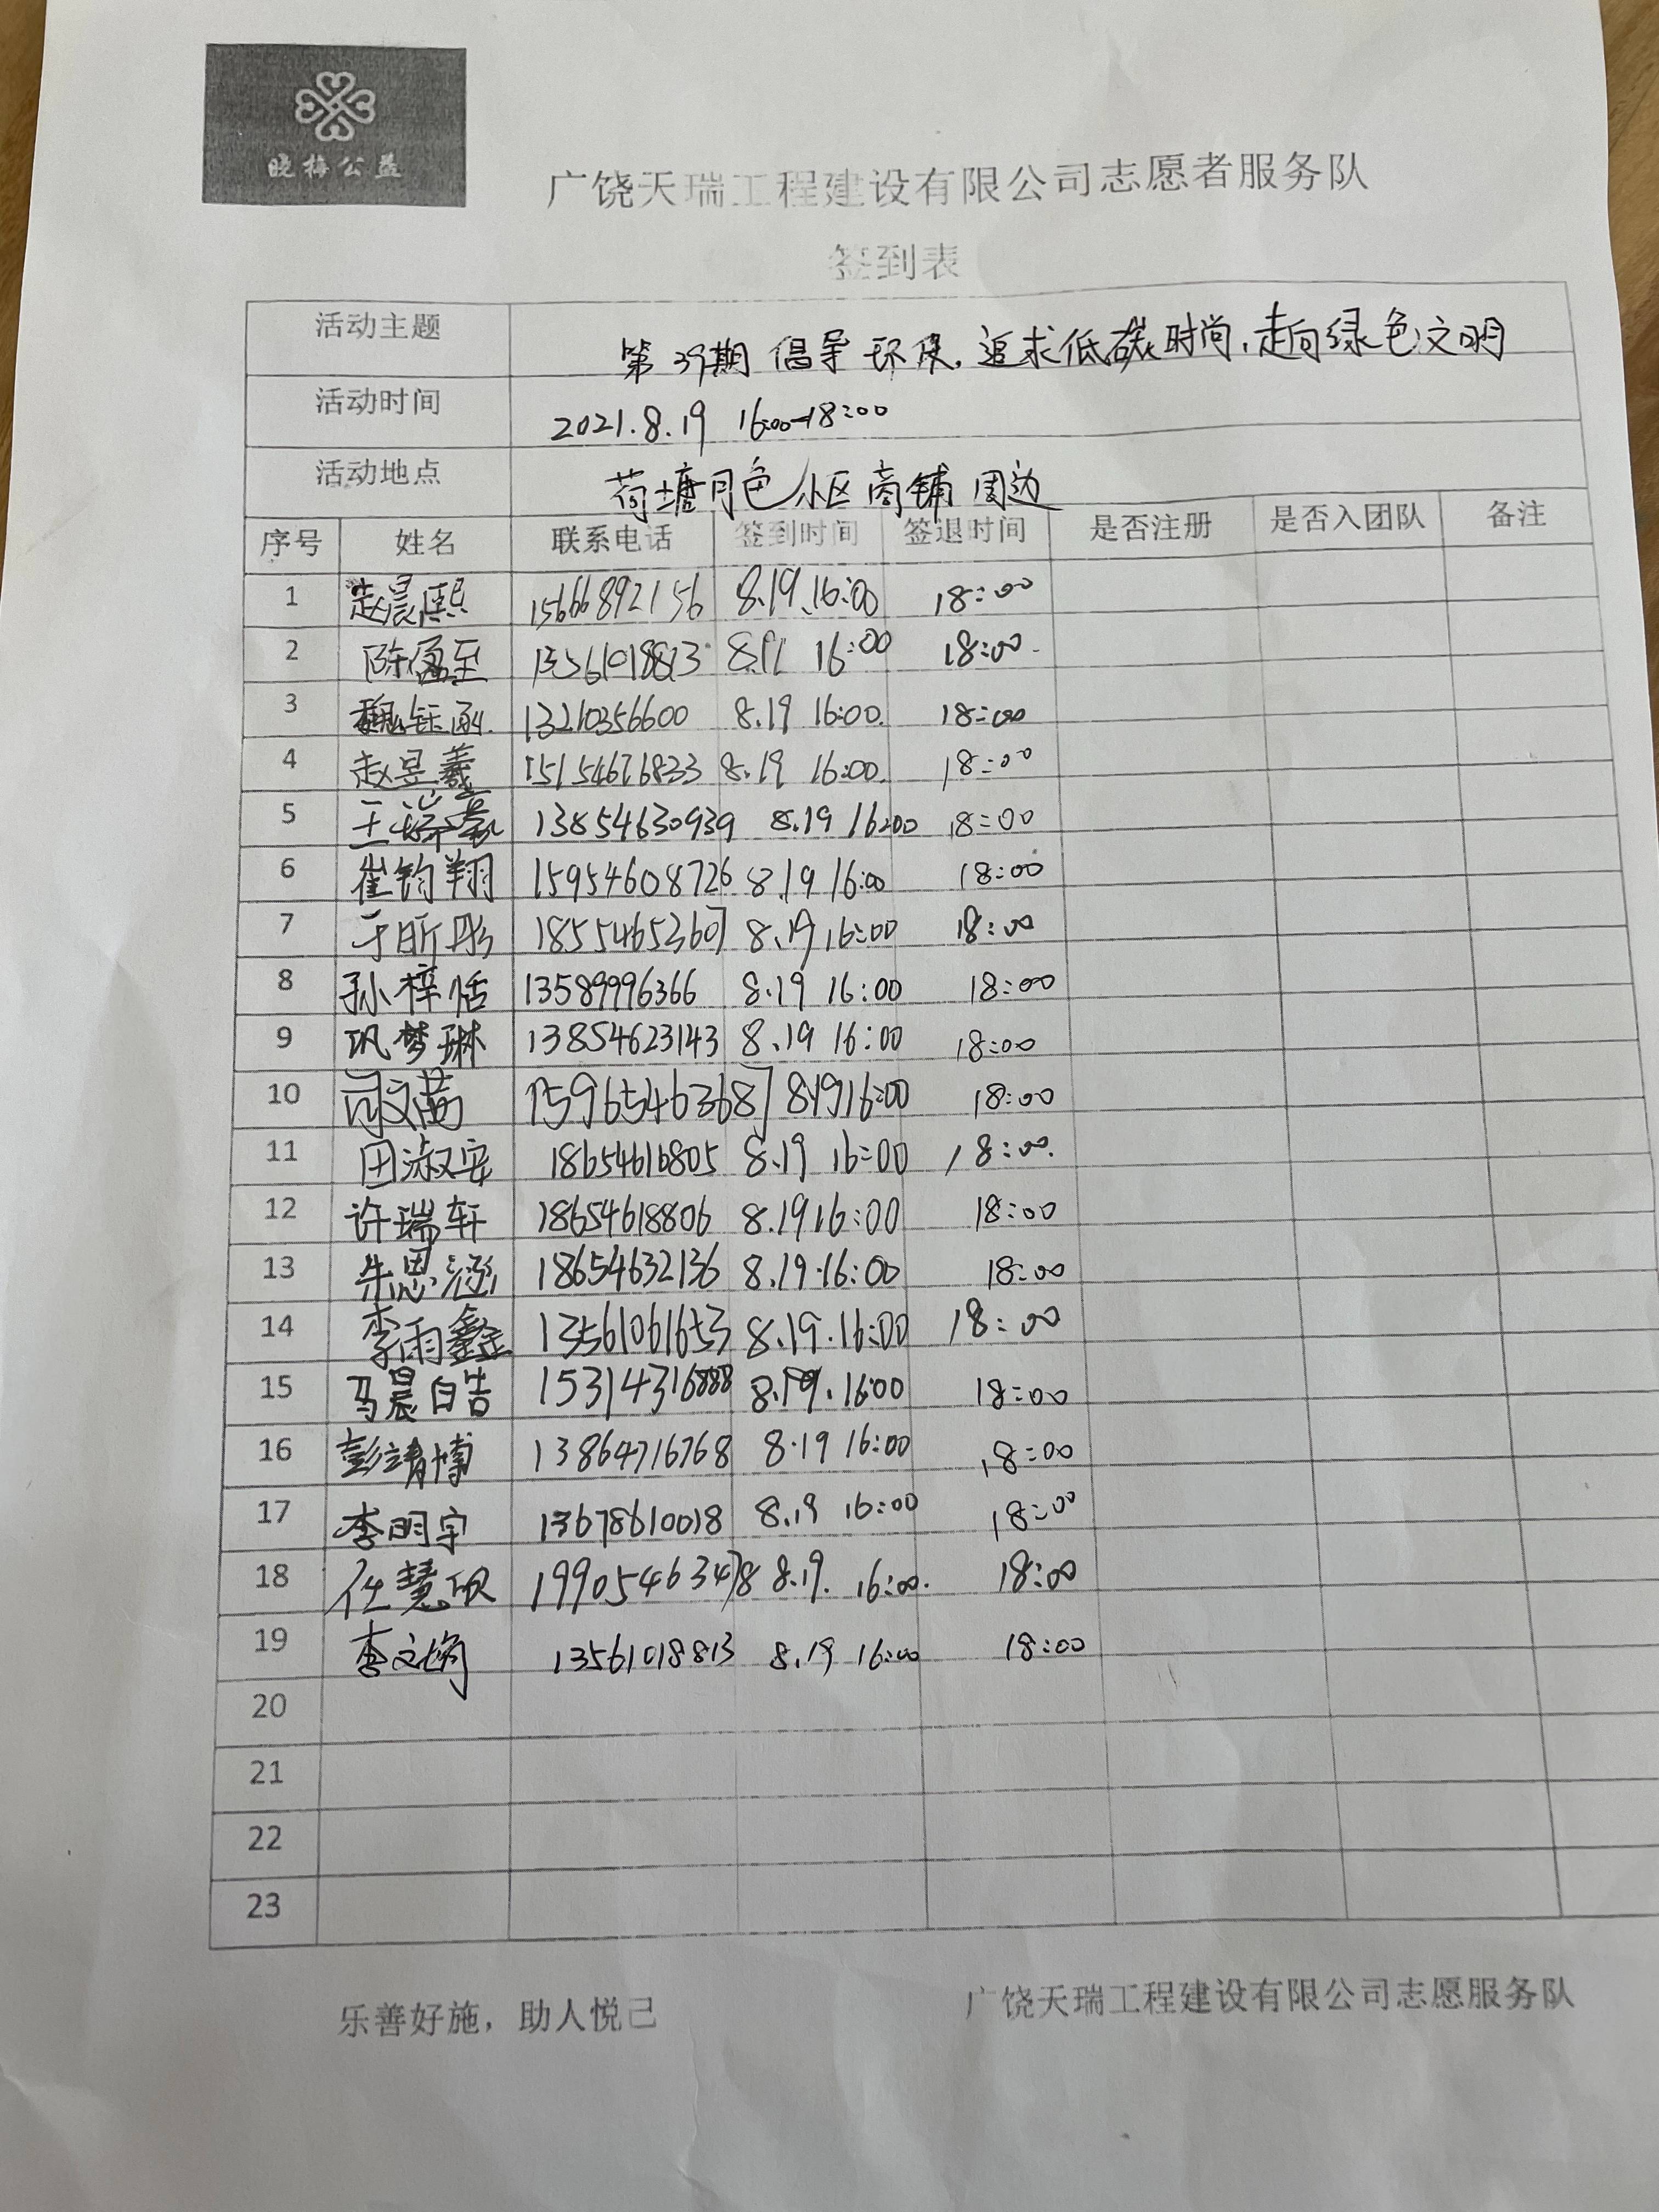 晓梅公益
广饶天瑞工程建设有限公司志愿者服务队
签到表
活动主题 第39期 倡导环保,追求低碳时尚,走向绿色文明
活动时间 2021.8.19 16:00-18:00
活动地点 荷塘月色小区商铺周边
序号 姓名 联系电话 签到时间 签退时间 是否注册 是否入团队 备注
1 赵晨熙 15666892156 8.19.16:00 18:00
2 陈盈至 13561018813 8.19 16:00 18:00
3 魏钰涵 13210356600 8.19 16:00 18:00
4 赵昱羲 15154676833 8.19 16:00 18:00
5 王瑞 13854630939 8.19 16:00 18:00
6 崔钧翔 15954608726 8.19 16:00 18:00
7 于昕彤 18554653607 8.19 16:00 18:00
8 孙梓恬 13589996366 8.19 16:00 18:00
9 巩梦琳 13854623143 8.19 16:00 18:00
10 司文菡 15965463687 8.19 16:00 18:00
11 田淑安 18654616805 8.19 16:00 18:00
12 许瑞轩 18654618806 8.19 16:00 18:00
13 朱思涵 18654632136 8.19.16:00 18:00
14 李雨鑫 13561061653 8.19.16:00 18:00
15 马晨皓 15314316888 8.19.16:00 18:00
16 彭靖博 13864716768 8.19 16:00 18:00
17 李明宇 13678610018 8.19 16:00 18:00
18 任慧 19905463478 8.19. 16:00. 18:00
19 李文 13561018813 8.19 16:00 18:00
20
21
22
23
乐善好施，助人悦己
广饶天瑞工程建设有限公司志愿服务队